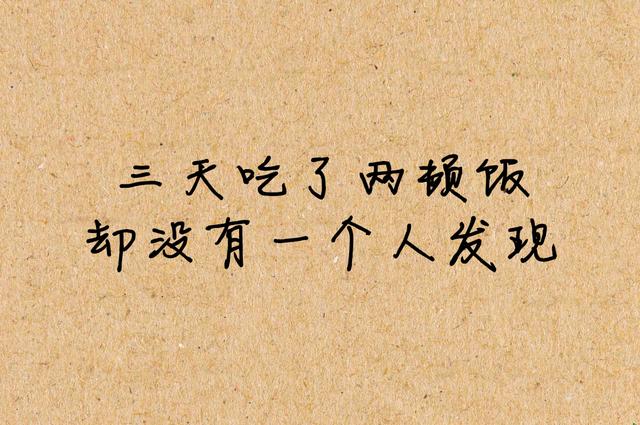 三天吃了两顿饭
却没有一个人发现